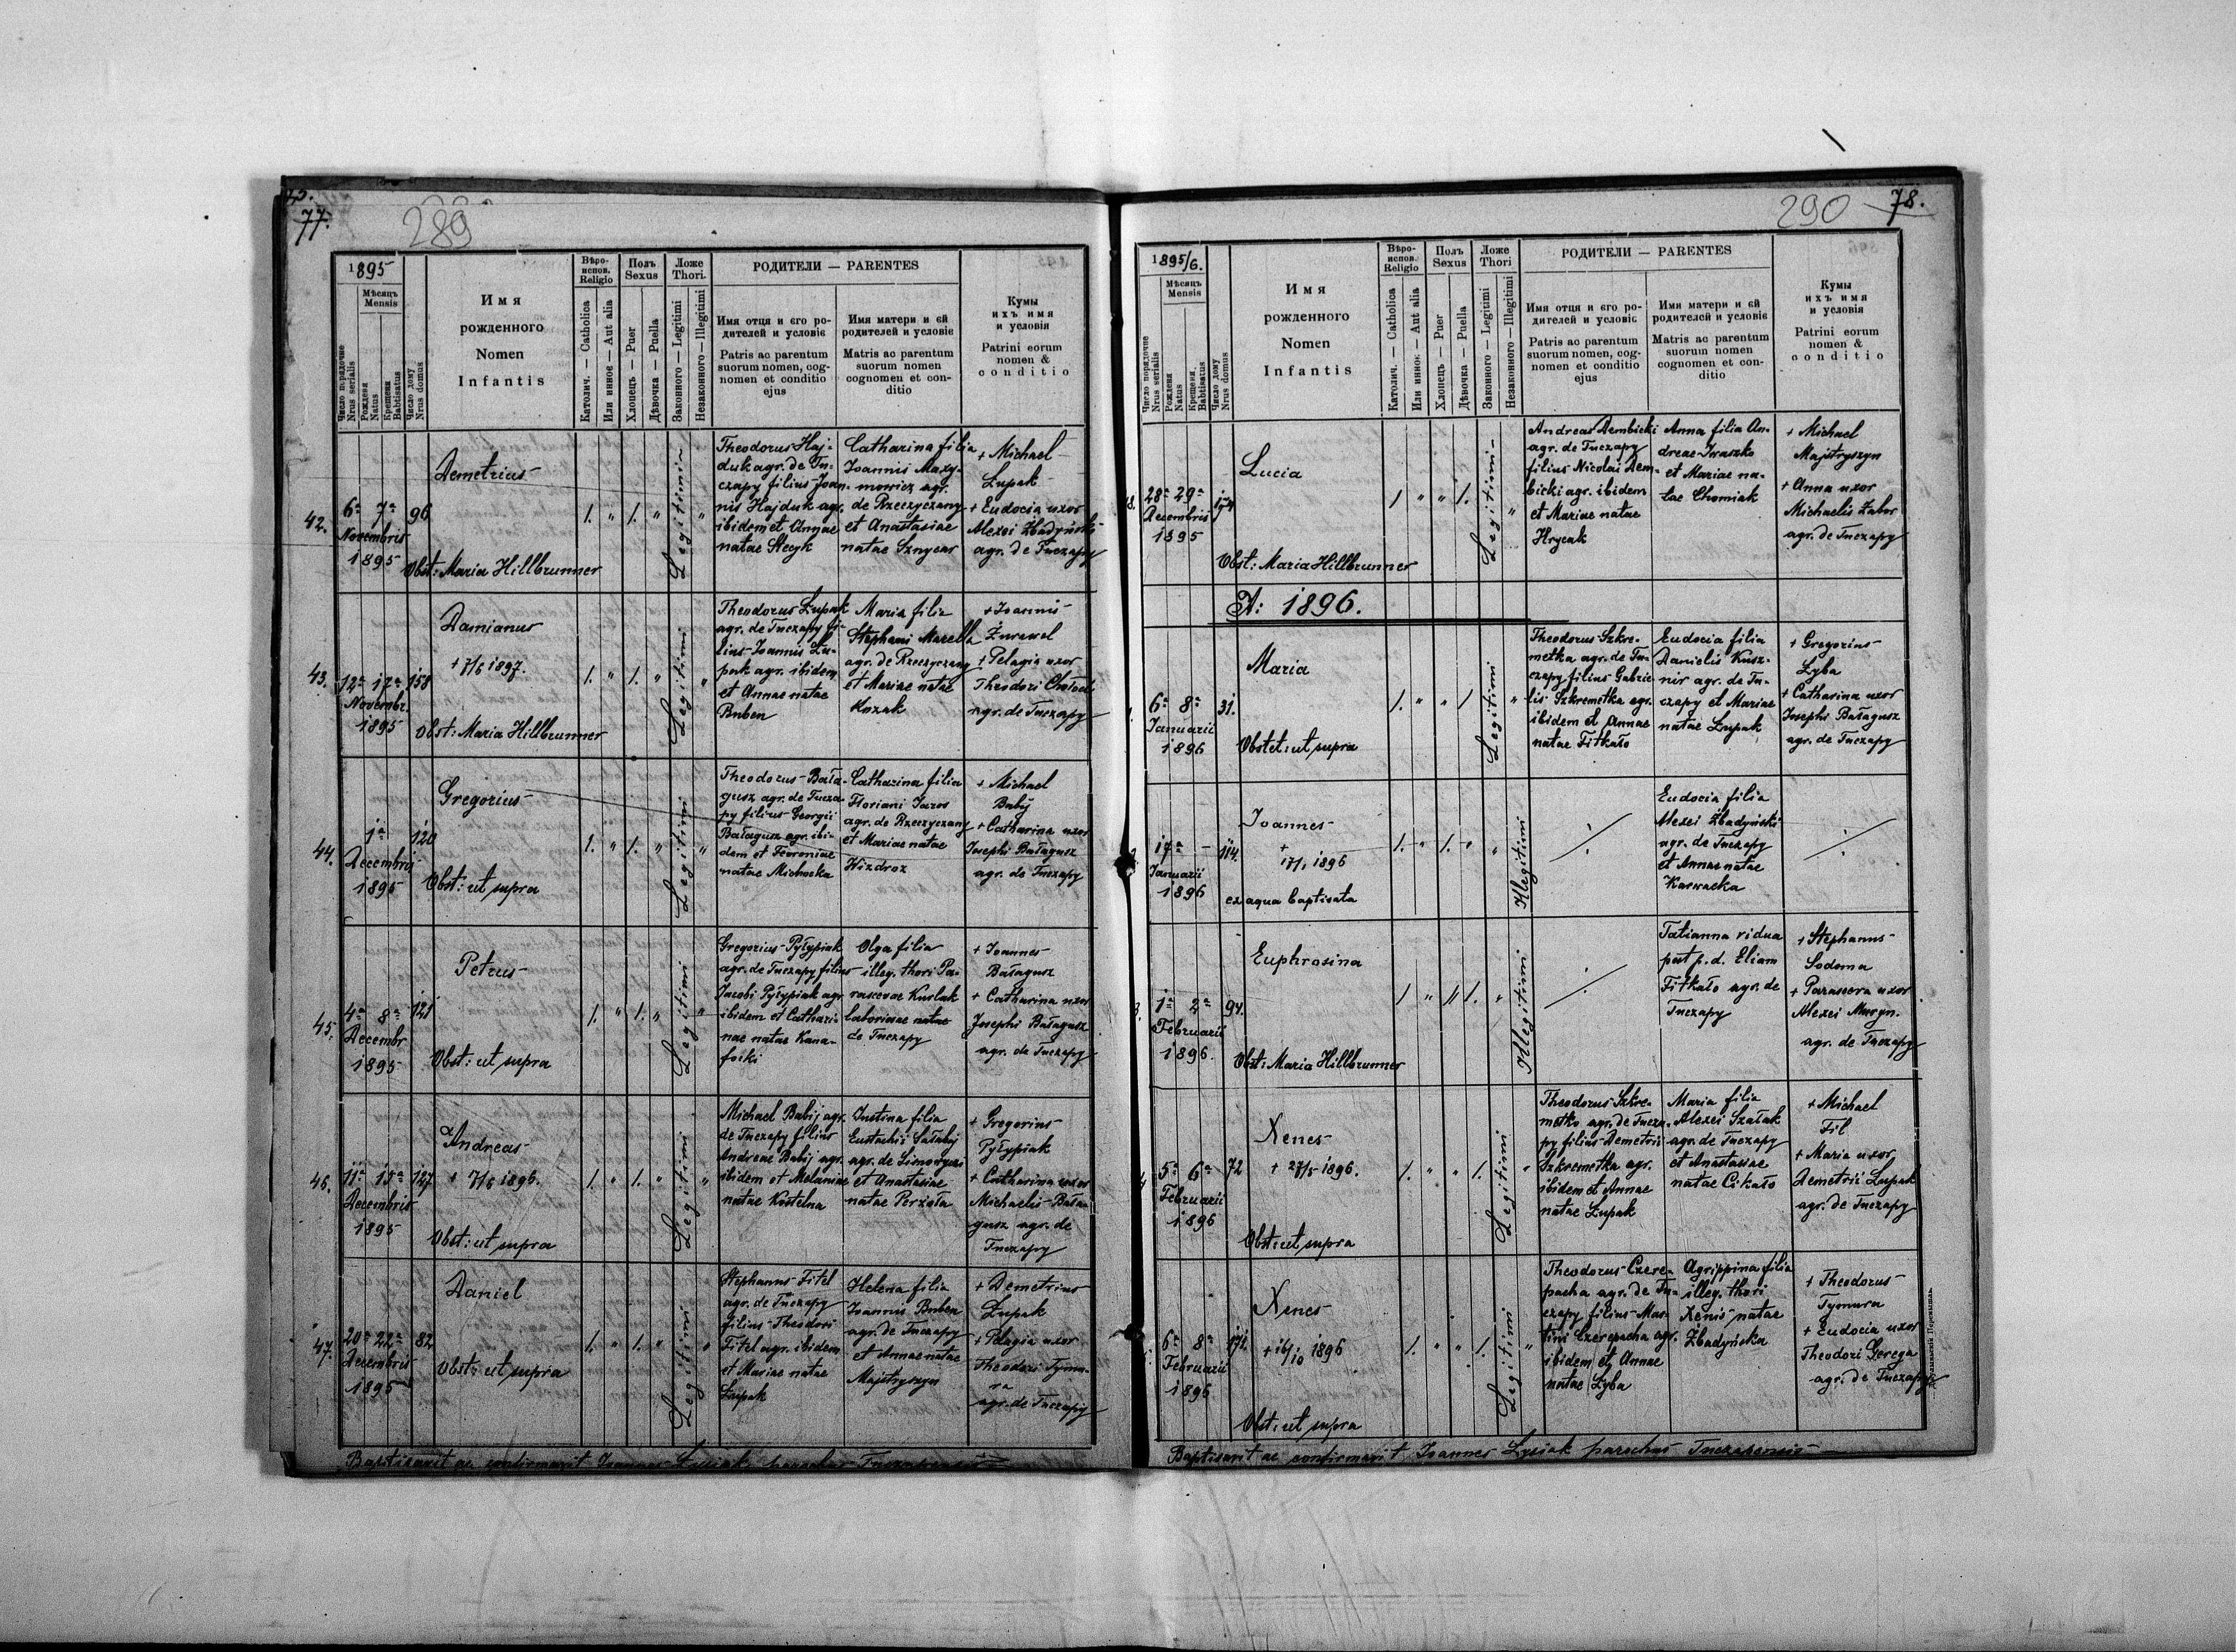 77.
289
1895
Мѣсяцъ
Mensis
Число порядочне
Nrus serialis
Рожденя
Natus
Крещени
Babtisatus
Число дому
Nrus domus
Имя
рожденного
Nomen
Infantis
Вѣро-
испов.
Religio
Католич. — Catholica
Или инное — Aut alia
Полъ
Sexus
Хлопець — Puer
Дѣвочка — Puella
Ложе
Thori.
Законного — Legitimi
Незаконного — Illegitimi
РОДИТЕЛИ — PARENTES
Имя отця и єго ро-
дителей и условіє
Patris ac parentum
suorum nomen, cog-
nomen et conditio
ejus
Имя матери и єй
родителей и условіє
Matris ac parentum
suorum nomen
cognomen et con-
ditio
Кумы
ихъ имя
и условія
Patrini eorum
nomen &
conditio
42.
6a 7a 96
Novembris
1895
Demetrius
Obst: Maria Hillbrunner
1. " 1. "
Legitimi
"
Theodorus Haj-
duk agr. de Tu-
czapy filius Joan-
nis Hajduk agr.
ibidem et Annae
natae Stecyk
Catharina filia
Joannis Maxy-
mowicz agr.
de Rzeczyczany
et Anastasiae
natae Sznycar
+ Michael
Łupak
+ Eudocia uxor
Alexei Zbadyński
agr. de Tuczapy
43.
12a 17a 158
Novembr.
1895
Damianus
+ 7/6 1897.
Obst: Maria Hillbrunner
1. " 1. "
Legitimi
"
Theodorus Łupak
agr. de Tuczapy fi-
lius Joannis Łu-
pak agr. ibidem
et Annae natae
Buben
Maria filia
Stephani Marella
agr. de Rzeczyczany
et Mariae natae
Kozak
+ Joannis
Żurawel
+ Pelagia uxor
Theodori
agr. de Tuczapy
44.
1a 120
Decembris
1895
Gregorius
Obst: ut supra
1. " 1. "
Legitimi
"
Theodorus Bała-
gusz agr. de Tucza-
py filius Georgii
Bałagusz agr. ibi-
dem et Fevroniae
natae Michocka
Catharina filia
Floriani Jaros
agr. de Rzeczyczany
et Mariae natae
Hizdroz
+ Michael
Babij
+ Catharina uxor
Josephi Bałagusz
agr. de Tuczapy
45.
4a 8a 121
Decembr
1895
Petrus
Obst: ut supra
1. " 1. "
Legitimi
"
Gregorius Pyłypiak
agr. de Tuczapy filius
Jacobi Pyłypiak agr
ibidem et Cathari-
nae natae Kana-
foiki
Olga filia
illeg. thori Pa-
rascevae Kurlak
laboriae natae
de Tuczapy
+ Joannes
Bałagusz
+ Catharina uxor
Josephi Bałagusz
agr. de Tuczapy
46.
11a 15a 127
Decembris
1895
Andreas
+ 7/6 1896.
Obst: ut supra
1. " 1. "
Legitimi
"
Michael Babij agr.
de Tuczapy filius
Andreae Babij agr.
ibidem et Melaniae
natae Kostelna
Justina filia
Eustachii Sałabaj
agr. de
et Anastasiae
natae Perxoła
+ Gregorius
Pyłypiak
+ Catharina uxor
Michaelis Bała-
gusz agr. de
Tuczapy
47.
20a 22a 82
Decembris
1895
Daniel
Obst: ut supra
1. " 1. "
Legitimi
"
Stephanus Fitel
agr. de Tuczapy
filius Theodori
Fitel agr. ibidem
et Mariae natae
Łupak
Helena filia
Joannis Buben
agr. de Tuczapy
et Annae natae
Majstryszyn
+ Demetrius
Łupak
+ Pelagia uxor
Theodori Tymu-
ra
agr. de Tuczapy
Baptisavit ac confirmavit Joannes Łysiak parochus Tuczapensis
290
78.
1895/6.
Мѣсяцъ
Mensis
Число порядочне
Nrus serialis
Рожденя
Natus
Крещеня,
Babtisatus
Число дому
Nrus domus
Имя
рожденного
Nomen
Infantis
Вѣро-
испов.
Religio
Католич. — Catholica
Или иннок. — Aut alia
Полъ
Sexus
Хлопець — Puer
Дѣвочка — Puella
Ложе
Thori
Законного — Legitimi
Незаконного — Illegitimi
РОДИТЕЛИ — PARENTES
Имя отця и єго ро-
дителей и условіє
Patris ac parentum
suorum nomen, cog-
nomen et conditio
ejus
Имя матери и єй
родителей и условіє
Matris ac parentum
suorum nomen
cognomen et con-
ditio
Кумы
ихъ имя
и условія
Patrini eorum
nomen &
conditio
28a 29a
Decembris
1895
Lucia
Obst: Maria Hillbrunner
1 " " 1.
Legitimi
"
Andreas Dembicki
agr. de Tuczapy
filius Nicolai Dem-
bicki agr. ibidem
et Mariae natae
Hrycak
Anna filia An-
dreae Iwaszko
et Mariae na-
tae Chomiak
+ Michael
Majstryszyn
+ Anna uxor
Michaelis Żabor
agr. de Tuczapy
A: 1896.
6a 8a 31.
Januarii
1896
Maria
Obstet: ut supra
1. " " 1
Legitimi
"
Theodorus Szkre-
metka agr. de Tu-
czapy filius Gabrie-
lis Szkremetka agr.
ibidem et Annae
natae Fitkało
Eudocia filia
Danielis Kusz-
nir agr. de Tu-
czapy et Mariae
natae Łupak
+ Gregorius
Łyba
+ Catharina uxor
Josephi Bałagusz
agr. de Tuczapy
17a - 114.
Januarii
1896
Joannes
+
17/1 1896
ex aqua baptisata
1. " 1. " "
Illegitimi
Eudocia filia
Alexei Zbadyński
agr. de Tuczapy
et Annae natae
Karwacka
1a 2a 94.
Februarii
1896.
Euphrosina
Obst: Maria Hillbrunner
1 " " 1. "
Illegitimi
Tatianna vidua
post p. d. Eliam
Fitkało agr. de
Tuczapy
+ Stephanus
Sodoma
+ Parascera uxor
Alexei Muryn.
agr. de Tuczapy
5a 6a 72
Februarii
1896
Xenes
+ 27/5 1896.
Obst: ut supra
1. " " 1.
Legitimi
"
Theodorus Szkre-
metko agr. de Tucza-
py filius Demetrii
Szkremetka agr.
ibidem et Annae
natae Łupak
Maria filia
Alexei Szałak
agr. de Tuczapy
et Anastasiae
natae Cikało
+ Michael
Fil
+ Maria uxor
Demetrii Łupak
agr. de Tuczapy
6a 8a 171.
Februarii
1896
Xenes
+ 16/10 1896
Obst: ut supra
1. " " 1.
Legitimi
"
Theodorus Czere-
pacha agr. de Tu-
czapy filius Mar-
tini Czerepacha agr.
ibidem et Annae
natae Łyba
Agrippina filia
illeg. thori
Xenis natae
Zbadyńska
+ Theodorus
Tymura
+ Eudocia uxor
Theodori Gerega
agr. de Tuczapy
Baptisavit ac confirmavit Joannes Łysiak parochus Tuczapensis